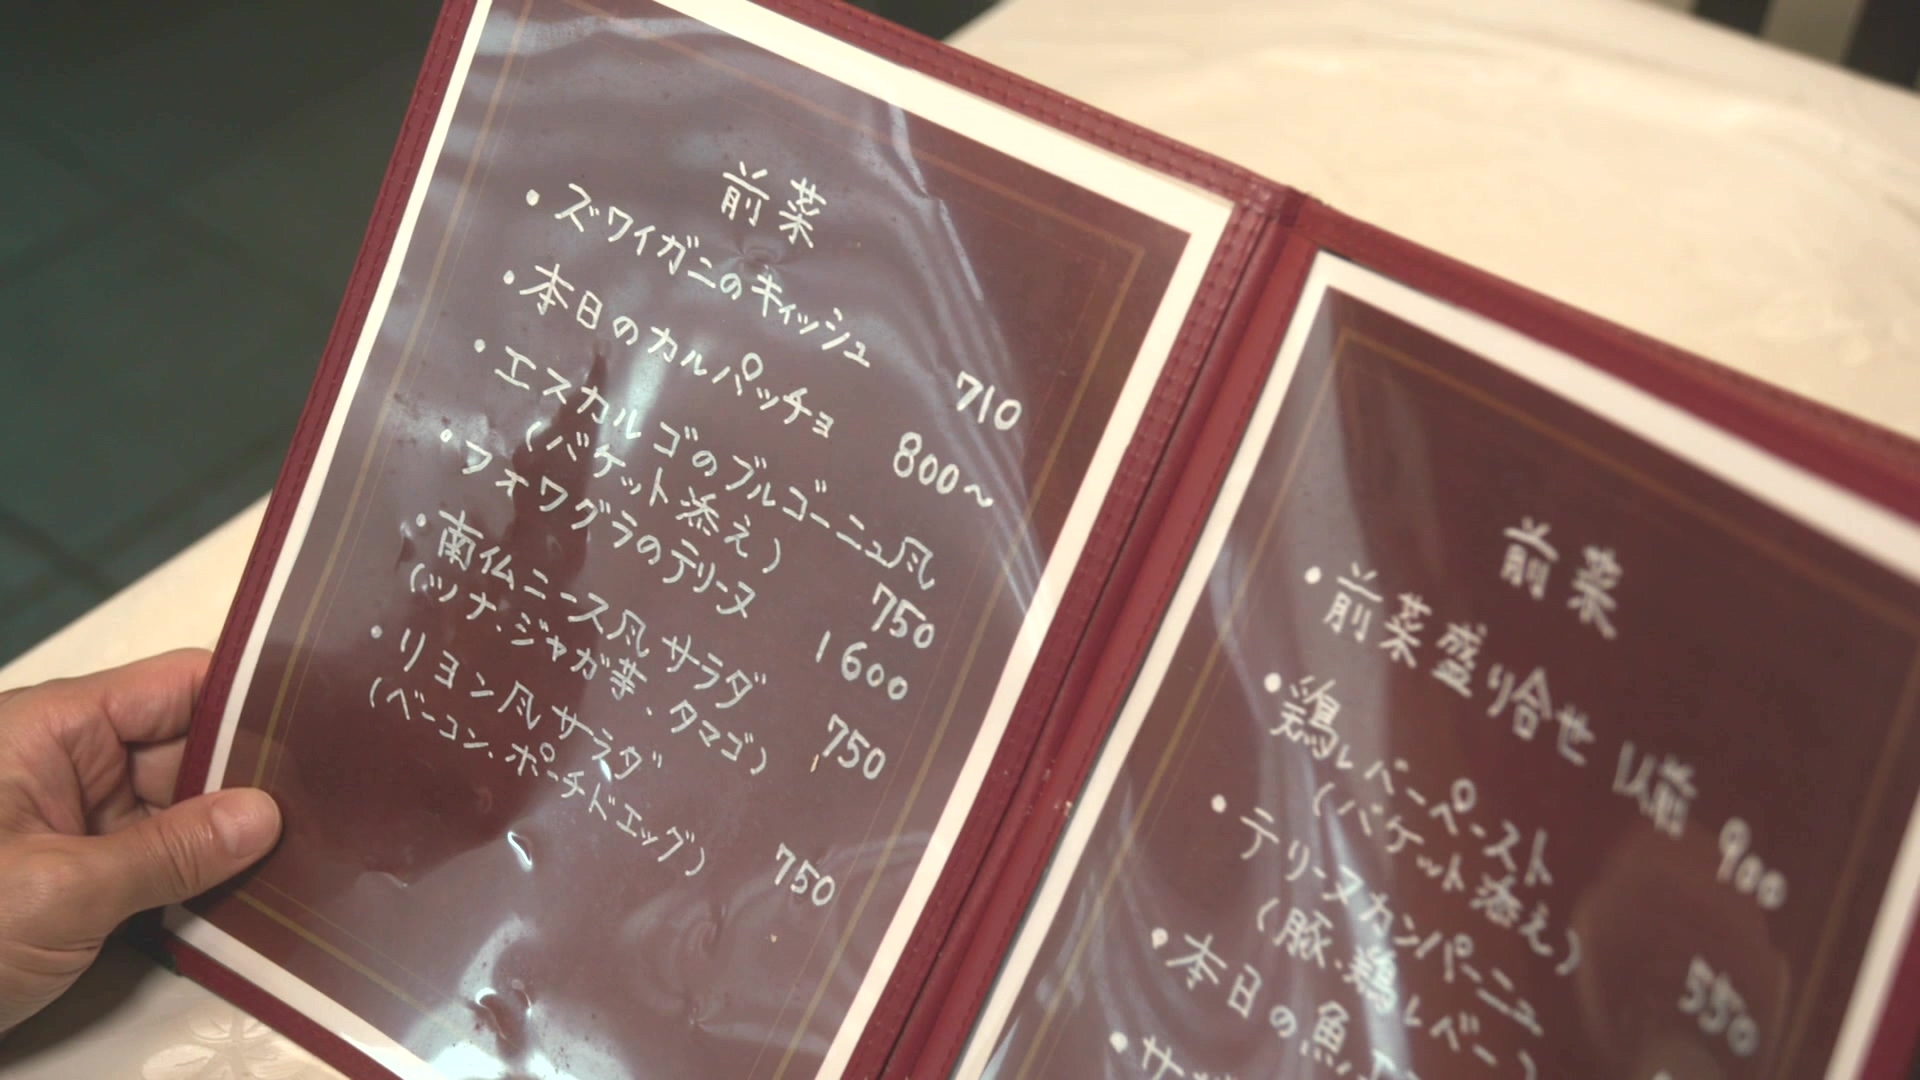 前菜
・ズワイガニのキッシュ 710
・本日のカルパッチョ 800〜
・エスカルゴのブルゴーニュ風
(バケット添え) 750
・フォワグラのテリーヌ 1600
・南仏ニース風サラダ
(ツナ・ジャガ芋・タマゴ) 750
・リヨン風サラダ
(ベーコン・ポーチドエッグ) 750
前菜
・前菜盛り合せ 1人前 900
・鶏レバーペースト
(バケット添え) 550
・テリーヌカンパーニュ
(豚・鶏レバー)
・本日の魚
・サ